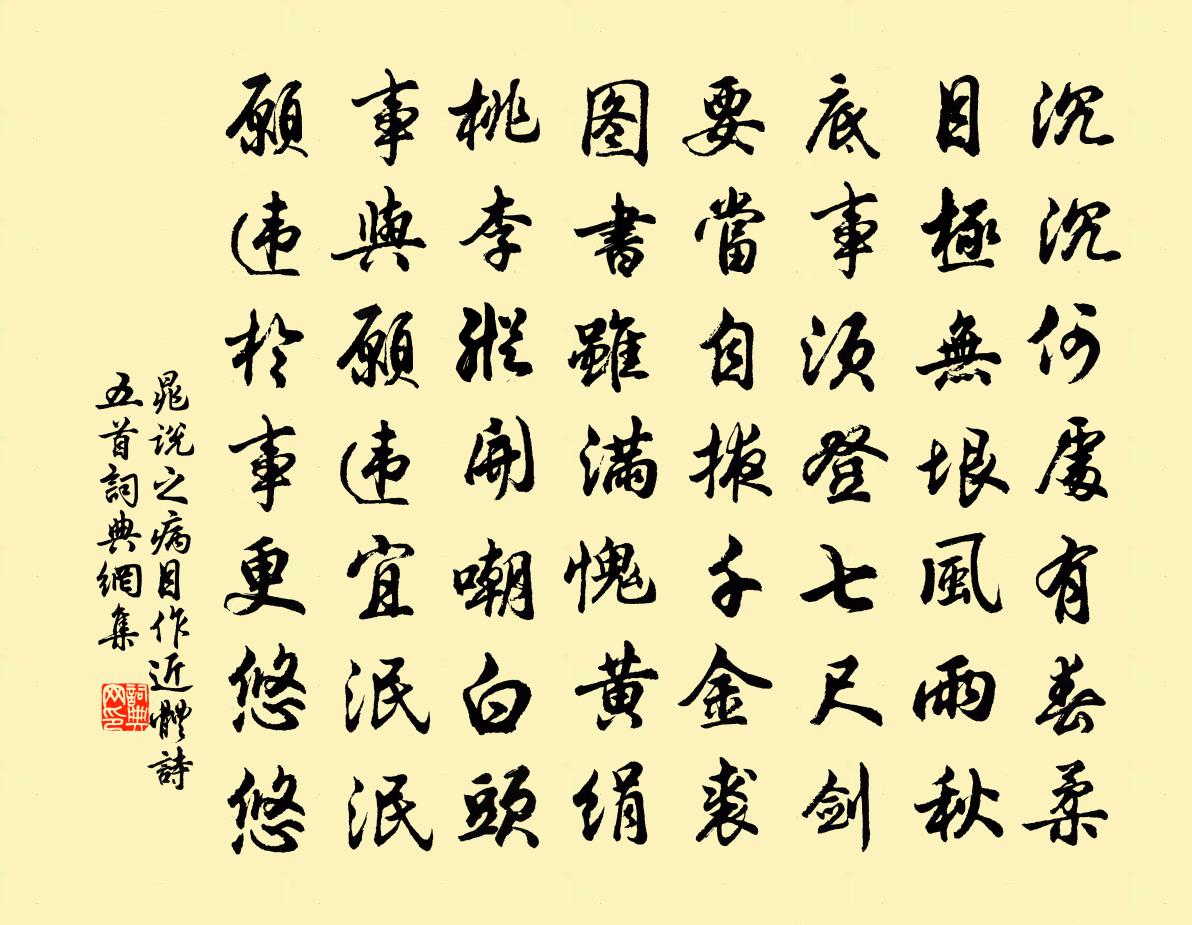 沉沉何處有春柔
目極無垠風雨秋
底事須登七尺劍
要當自掖千金裘
图書雖滿愧黄絹
桃李縱開嘲白頭
事與願违宜泯泯
願违於事更悠悠
晁說之病目作近體詩
五首詞典網集
詞典
网印